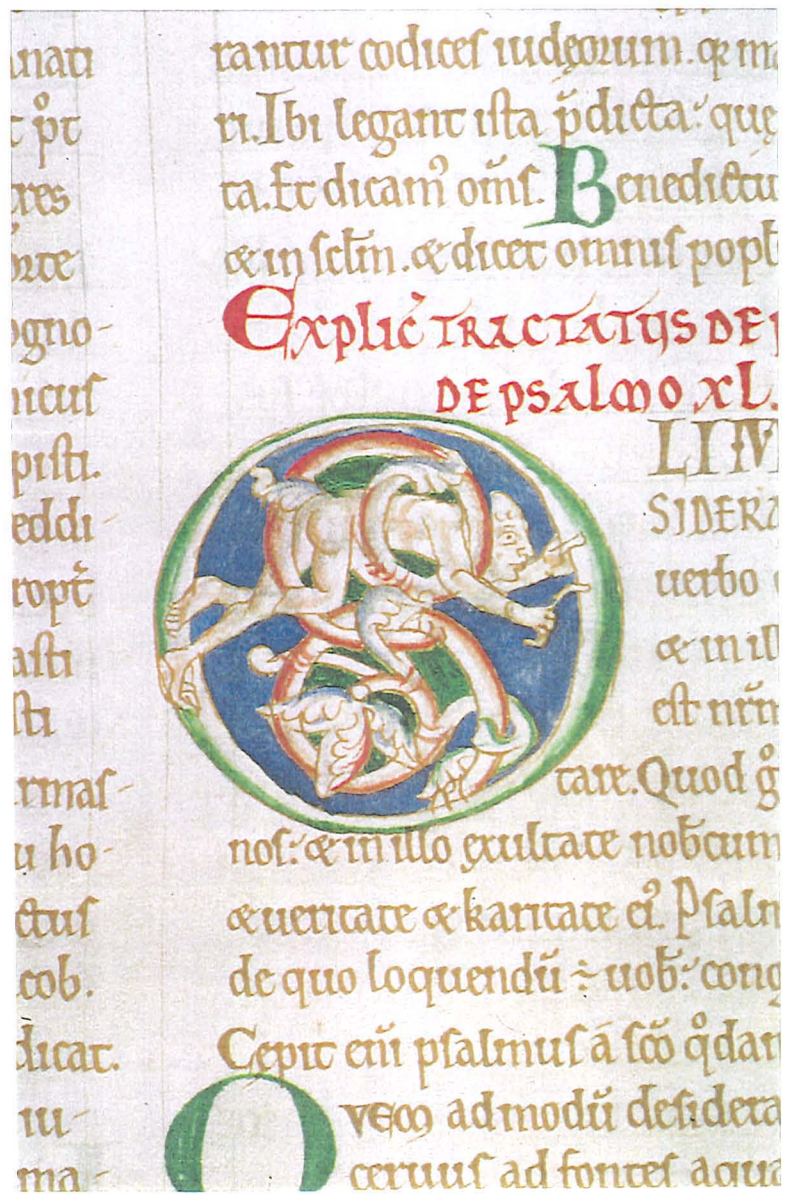 nati
pt̄
res
orte
ogno-
nicus
pisti.
reddi-
ropt̄
asti
sti
rmas-
u ho-
ctus
cob.
dicat.
iu-
ma-
rantur codices iudęorum. qr̄ ma
ri. Ibi legant ista p̄dicta: quę
ta. Et dicam᾿ om̄s. Benedictu
& in sclm̄. & dicet omnis popł
Explic̄ TRACTATUS DE
DE psalmo XL.
LIM
SIDERA
uerbo
& in ill
est nr̄m
tare. Quod g̊
nos: & in illo exultate nob̄cum
& ueritate & karitate ei᾿. Psalm
de quo loquendū ÷ uob̄: cong
Cepit eni̅ psalmus ā scō q̊dam
Quem admodū desidera
ceruus ad fontes aqua